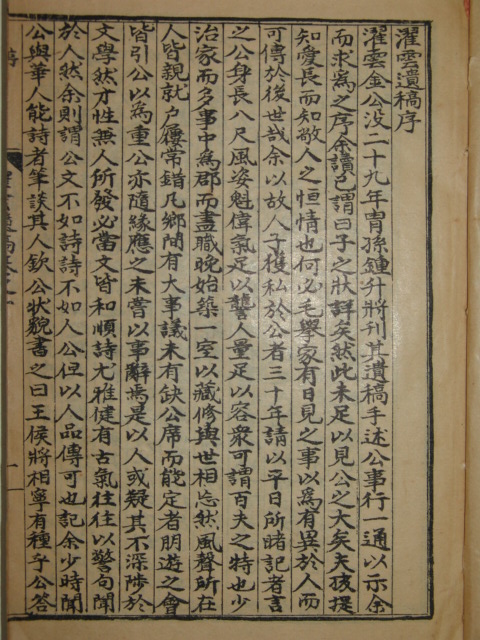 濯雲遺稿序
濯雲金公没二十九年胄孫鍾升將刊其遺稿手述公事行一通以示余
而求爲之序余讀已謂曰子之狀詳矣然此未足以見公之大矣夫孩提
知愛長而知敬人之恒情也何必毛擧家有日見之事以爲有異於人而
可傳於後世哉余以故人子獲私於公者三十年請以平日所睹記者言
之公身長八尺風姿魁偉氣足以讋人量足以容衆可謂百夫之特也少
治家而多事中爲郡而盡職晚始築一室以藏修與世相忘然風聲所在
人皆親就户屨常錯凡鄉閭有大事議未有缺公席而能定者朋遊之會
皆引公以爲重公亦隨緣應之未嘗以事辭焉是以人或疑其不深陟於
文學然才性無人所發必當文皆和順詩尤雅健有古氣徃徃以警句聞
於人然余則謂公文不如詩詩不如人公但以人品傳可也記余少時聞
公與華人能詩者筆談其人欽公狀貌書之曰王侯將相寧有種乎公答